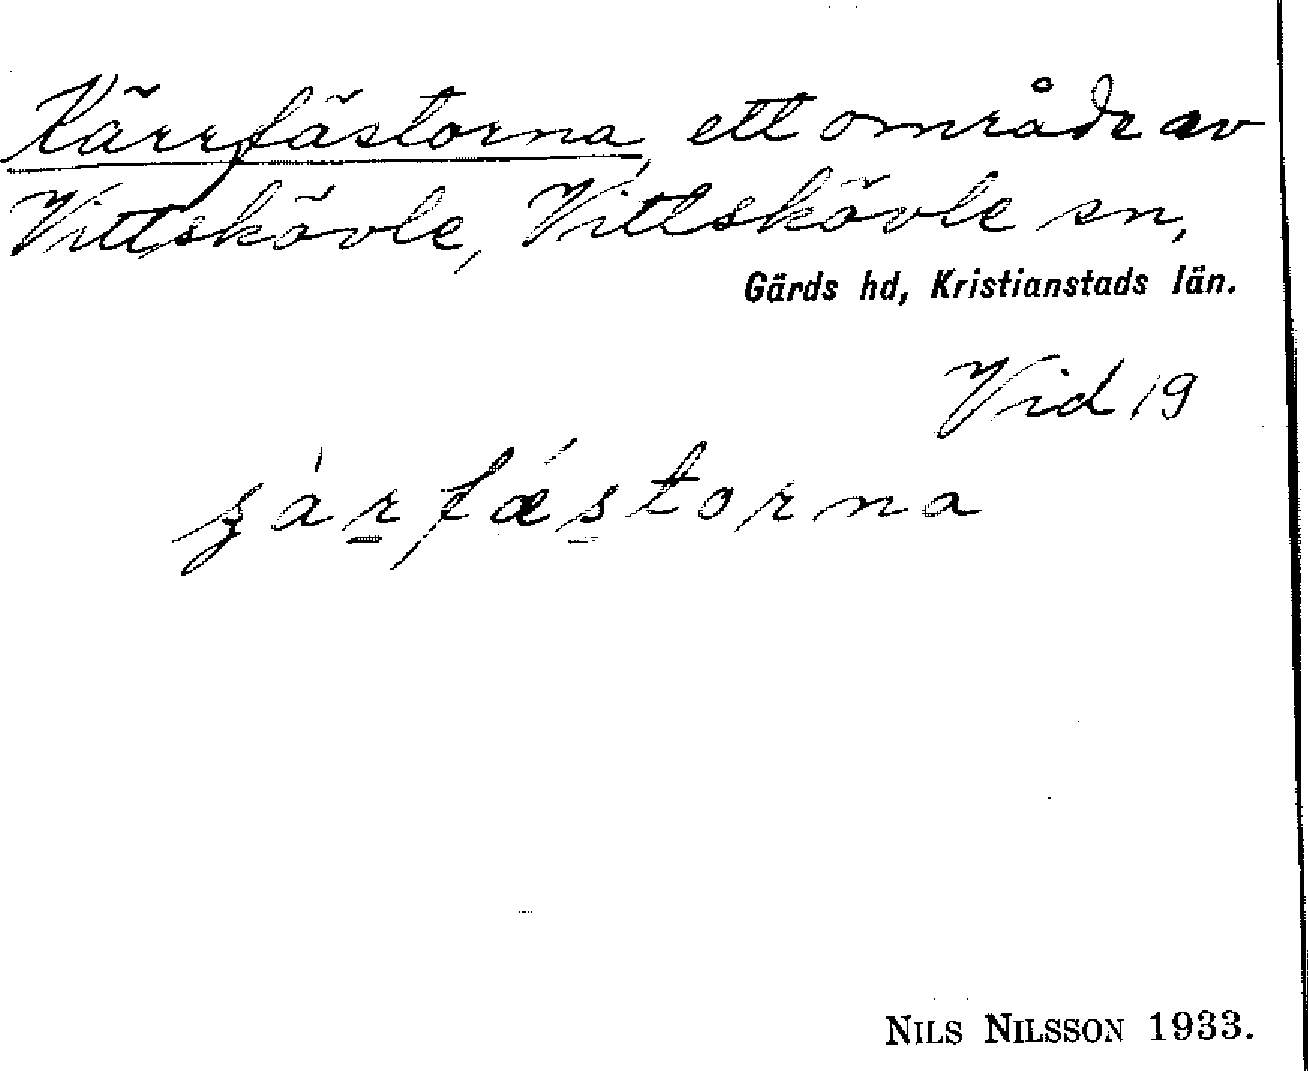 Kärrfästorna, ett område av
Vittskövle, Vittskövle sn,
Gärds hd, Kristianstads län.
Vid 19
fæstorna
NILS NILSSON 1933.